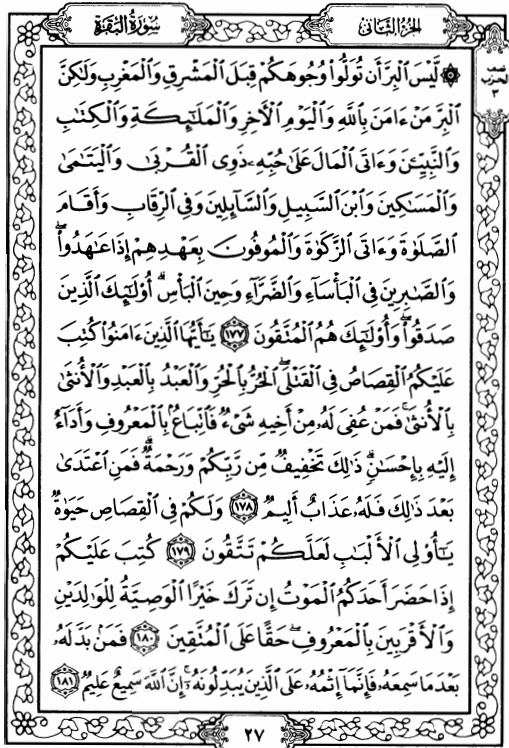 سُورَةُ البَقَرَةِ
الجُزْءُ الثَّانِي
نصف
الحزب
٣
۞ لَّيْسَ ٱلْبِرَّ أَن تُوَلُّوا۟ وُجُوهَكُمْ قِبَلَ ٱلْمَشْرِقِ وَٱلْمَغْرِبِ وَلَٰكِنَّ
ٱلْبِرَّ مَنْ ءَامَنَ بِٱللَّهِ وَٱلْيَوْمِ ٱلْءَاخِرِ وَٱلْمَلَٰٓئِكَةِ وَٱلْكِتَٰبِ
وَٱلنَّبِيِّـۧنَ وَءَاتَى ٱلْمَالَ عَلَىٰ حُبِّهِۦ ذَوِى ٱلْقُرْبَىٰ وَٱلْيَتَٰمَىٰ
وَٱلْمَسَٰكِينَ وَٱبْنَ ٱلسَّبِيلِ وَٱلسَّآئِلِينَ وَفِى ٱلرِّقَابِ وَأَقَامَ
ٱلصَّلَوٰةَ وَءَاتَى ٱلزَّكَوٰةَ وَٱلْمُوفُونَ بِعَهْدِهِمْ إِذَا عَٰهَدُوا۟ۖ
وَٱلصَّٰبِرِينَ فِى ٱلْبَأْسَآءِ وَٱلضَّرَّآءِ وَحِينَ ٱلْبَأْسِۗ أُو۟لَٰٓئِكَ ٱلَّذِينَ
صَدَقُوا۟ۖ وَأُو۟لَٰٓئِكَ هُمُ ٱلْمُتَّقُونَ ١٧٧ يَٰٓأَيُّهَا ٱلَّذِينَ ءَامَنُوا۟ كُتِبَ
عَلَيْكُمُ ٱلْقِصَاصُ فِى ٱلْقَتْلَىۖ ٱلْحُرُّ بِٱلْحُرِّ وَٱلْعَبْدُ بِٱلْعَبْدِ وَٱلْأُنثَىٰ
بِٱلْأُنثَىٰۚ فَمَنْ عُفِىَ لَهُۥ مِنْ أَخِيهِ شَىْءٌ فَٱتِّبَاعٌۢ بِٱلْمَعْرُوفِ وَأَدَآءٌ
إِلَيْهِ بِإِحْسَٰنٍۗ ذَٰلِكَ تَخْفِيفٌ مِّن رَّبِّكُمْ وَرَحْمَةٌۗ فَمَنِ ٱعْتَدَىٰ
بَعْدَ ذَٰلِكَ فَلَهُۥ عَذَابٌ أَلِيمٌ ١٧٨ وَلَكُمْ فِى ٱلْقِصَاصِ حَيَوٰةٌ
يَٰٓأُو۟لِى ٱلْأَلْبَٰبِ لَعَلَّكُمْ تَتَّقُونَ ١٧٩ كُتِبَ عَلَيْكُمْ
إِذَا حَضَرَ أَحَدَكُمُ ٱلْمَوْتُ إِن تَرَكَ خَيْرًا ٱلْوَصِيَّةُ لِلْوَٰلِدَيْنِ
وَٱلْأَقْرَبِينَ بِٱلْمَعْرُوفِۖ حَقًّا عَلَى ٱلْمُتَّقِينَ ١٨٠ فَمَنۢ بَدَّلَهُۥ
بَعْدَمَا سَمِعَهُۥ فَإِنَّمَآ إِثْمُهُۥ عَلَى ٱلَّذِينَ يُبَدِّلُونَهُۥٓۚ إِنَّ ٱللَّهَ سَمِيعٌ عَلِيمٌ ١٨١
٢٧